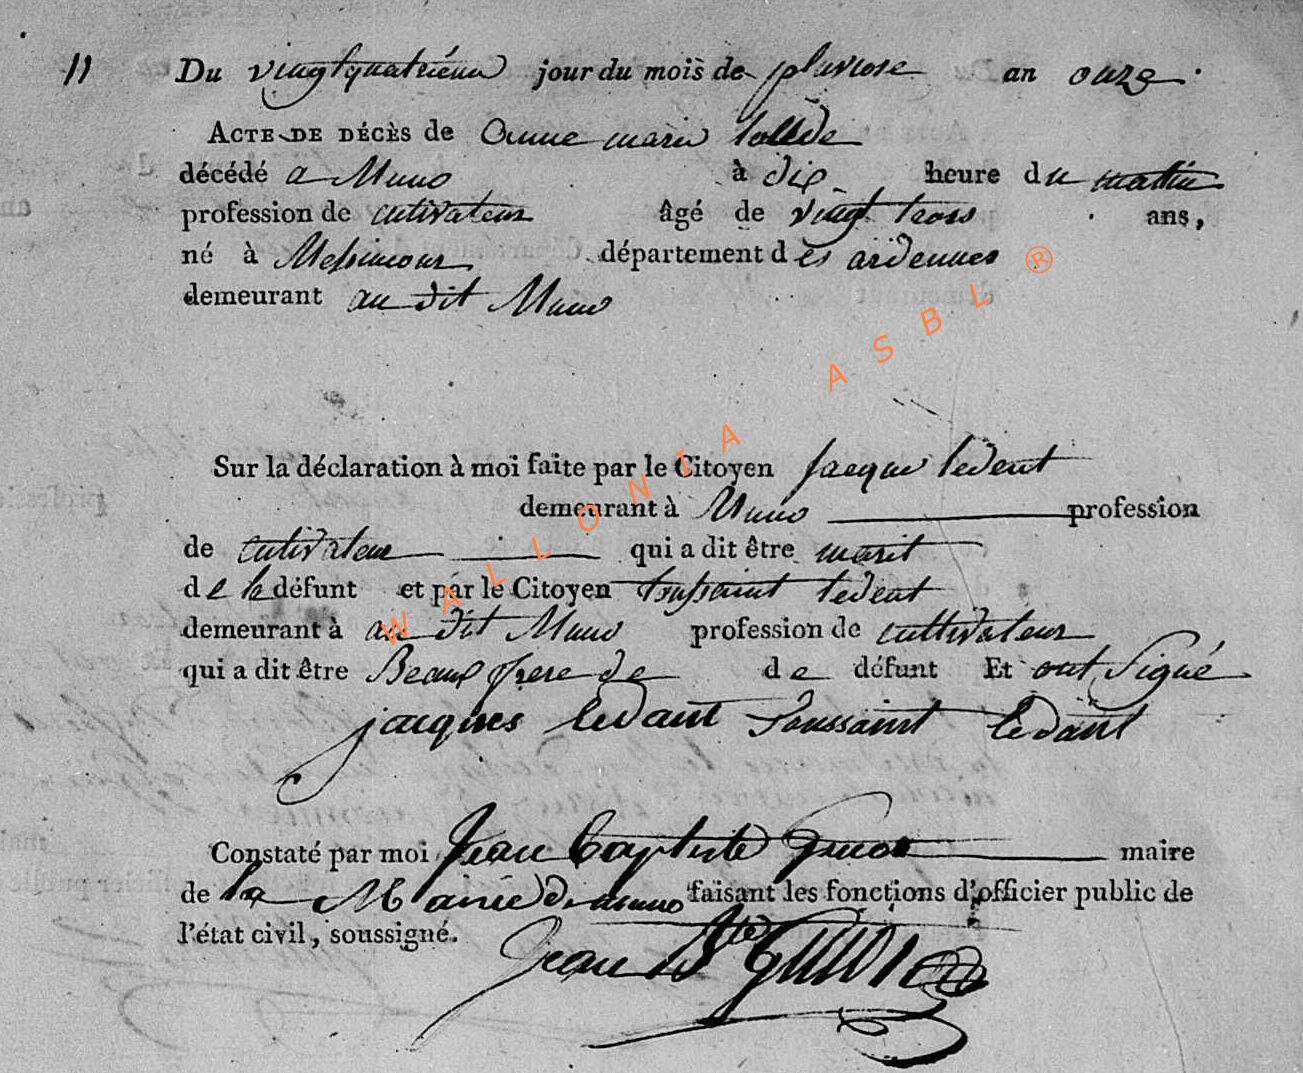 11 Du vingtquatrieme jour du mois de pluviose an onze.
ACTE DE DÉCÈS de Anne marie
décédé a Muno à dix heure du matin
profession de cutivateur âgé de vingt trois ans,
né à Messincour département des ardennes
demeurant au dit Muno
Sur la déclaration à moi faite par le Citoyen Jacque ledent
demeurant à Muno profession
de cutivateur qui a dit être marit
de la défunt et par le Citoyen toussaint ledent
demeurant à au dit Muno profession de cultivateur
qui a dit être Beaux frere de de défunt Et ont Signé
jacques ledant Toussaint ledant
Constaté par moi Jean baptiste maire
de la Mairie de muno faisant les fonctions d'officier public de
l'état civil, soussigné.
Jean Bte
WALLONIA ASBL ®